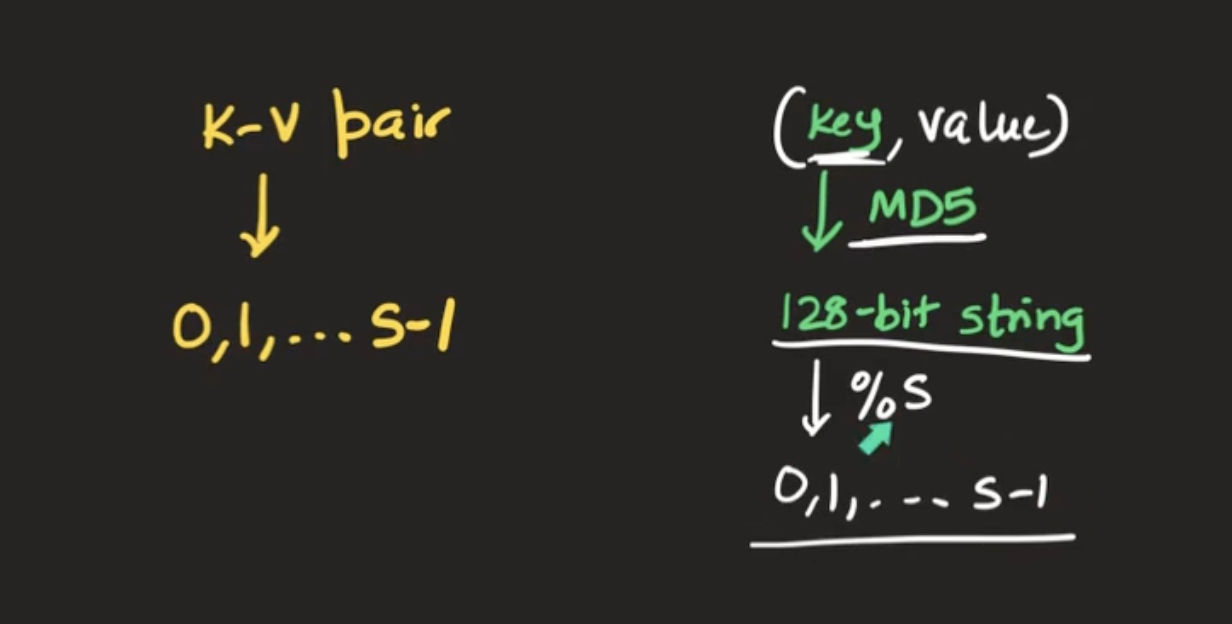 K-V pair
0,1,... S-1
(key, value)
MD5
128-bit string
% S
0,1,.--. S-1